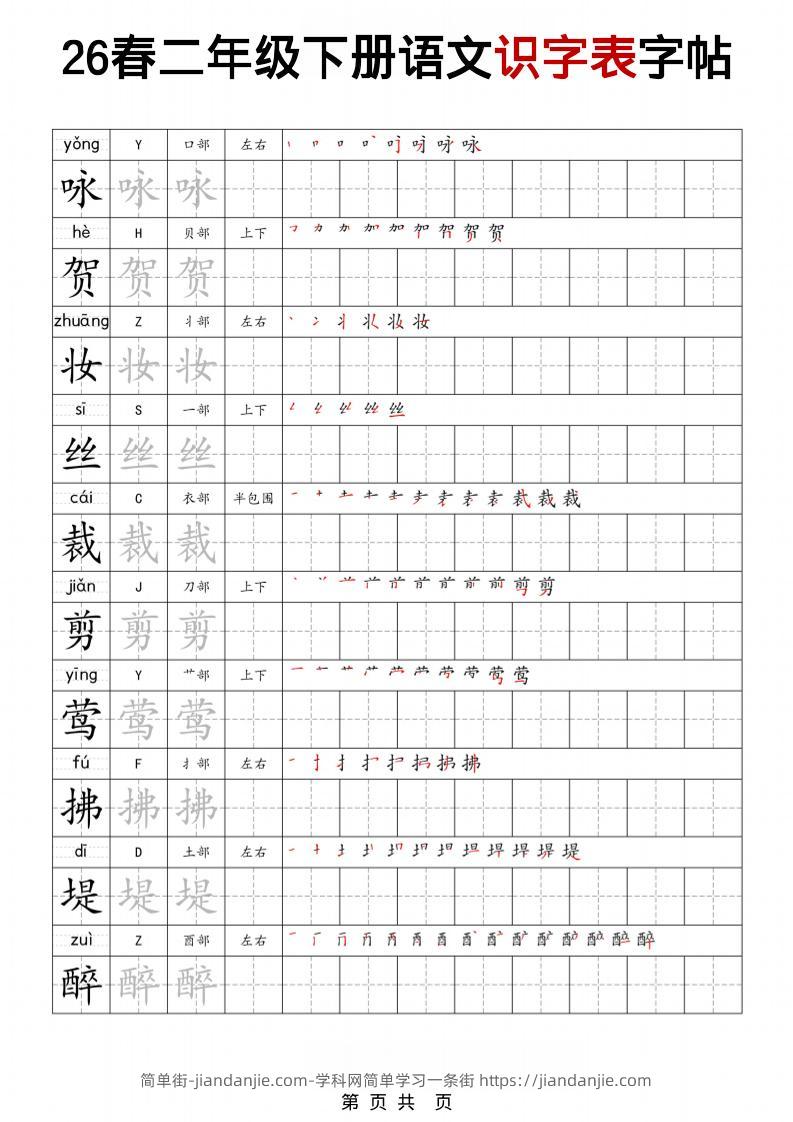 26春二年级下册语文识字表字帖
yǒng Y 口部 左右
咏 咏 咏
hè H 贝部 上下
贺 贺 贺
zhuāng Z 丬部 左右
妆 妆 妆
sī S 一部 上下
丝 丝 丝
cái C 衣部 半包围
裁 裁 裁
jiǎn J 刀部 上下
剪 剪 剪
yīng Y 艹部 上下
莺 莺 莺
fú F 扌部 左右
拂 拂 拂
dī D 土部 左右
堤 堤 堤
zuì Z 酉部 左右
醉 醉 醉
简单街-jiandanjie.com-学科网简单学习一条街 https://jiandanjie.com
第 页 共 页